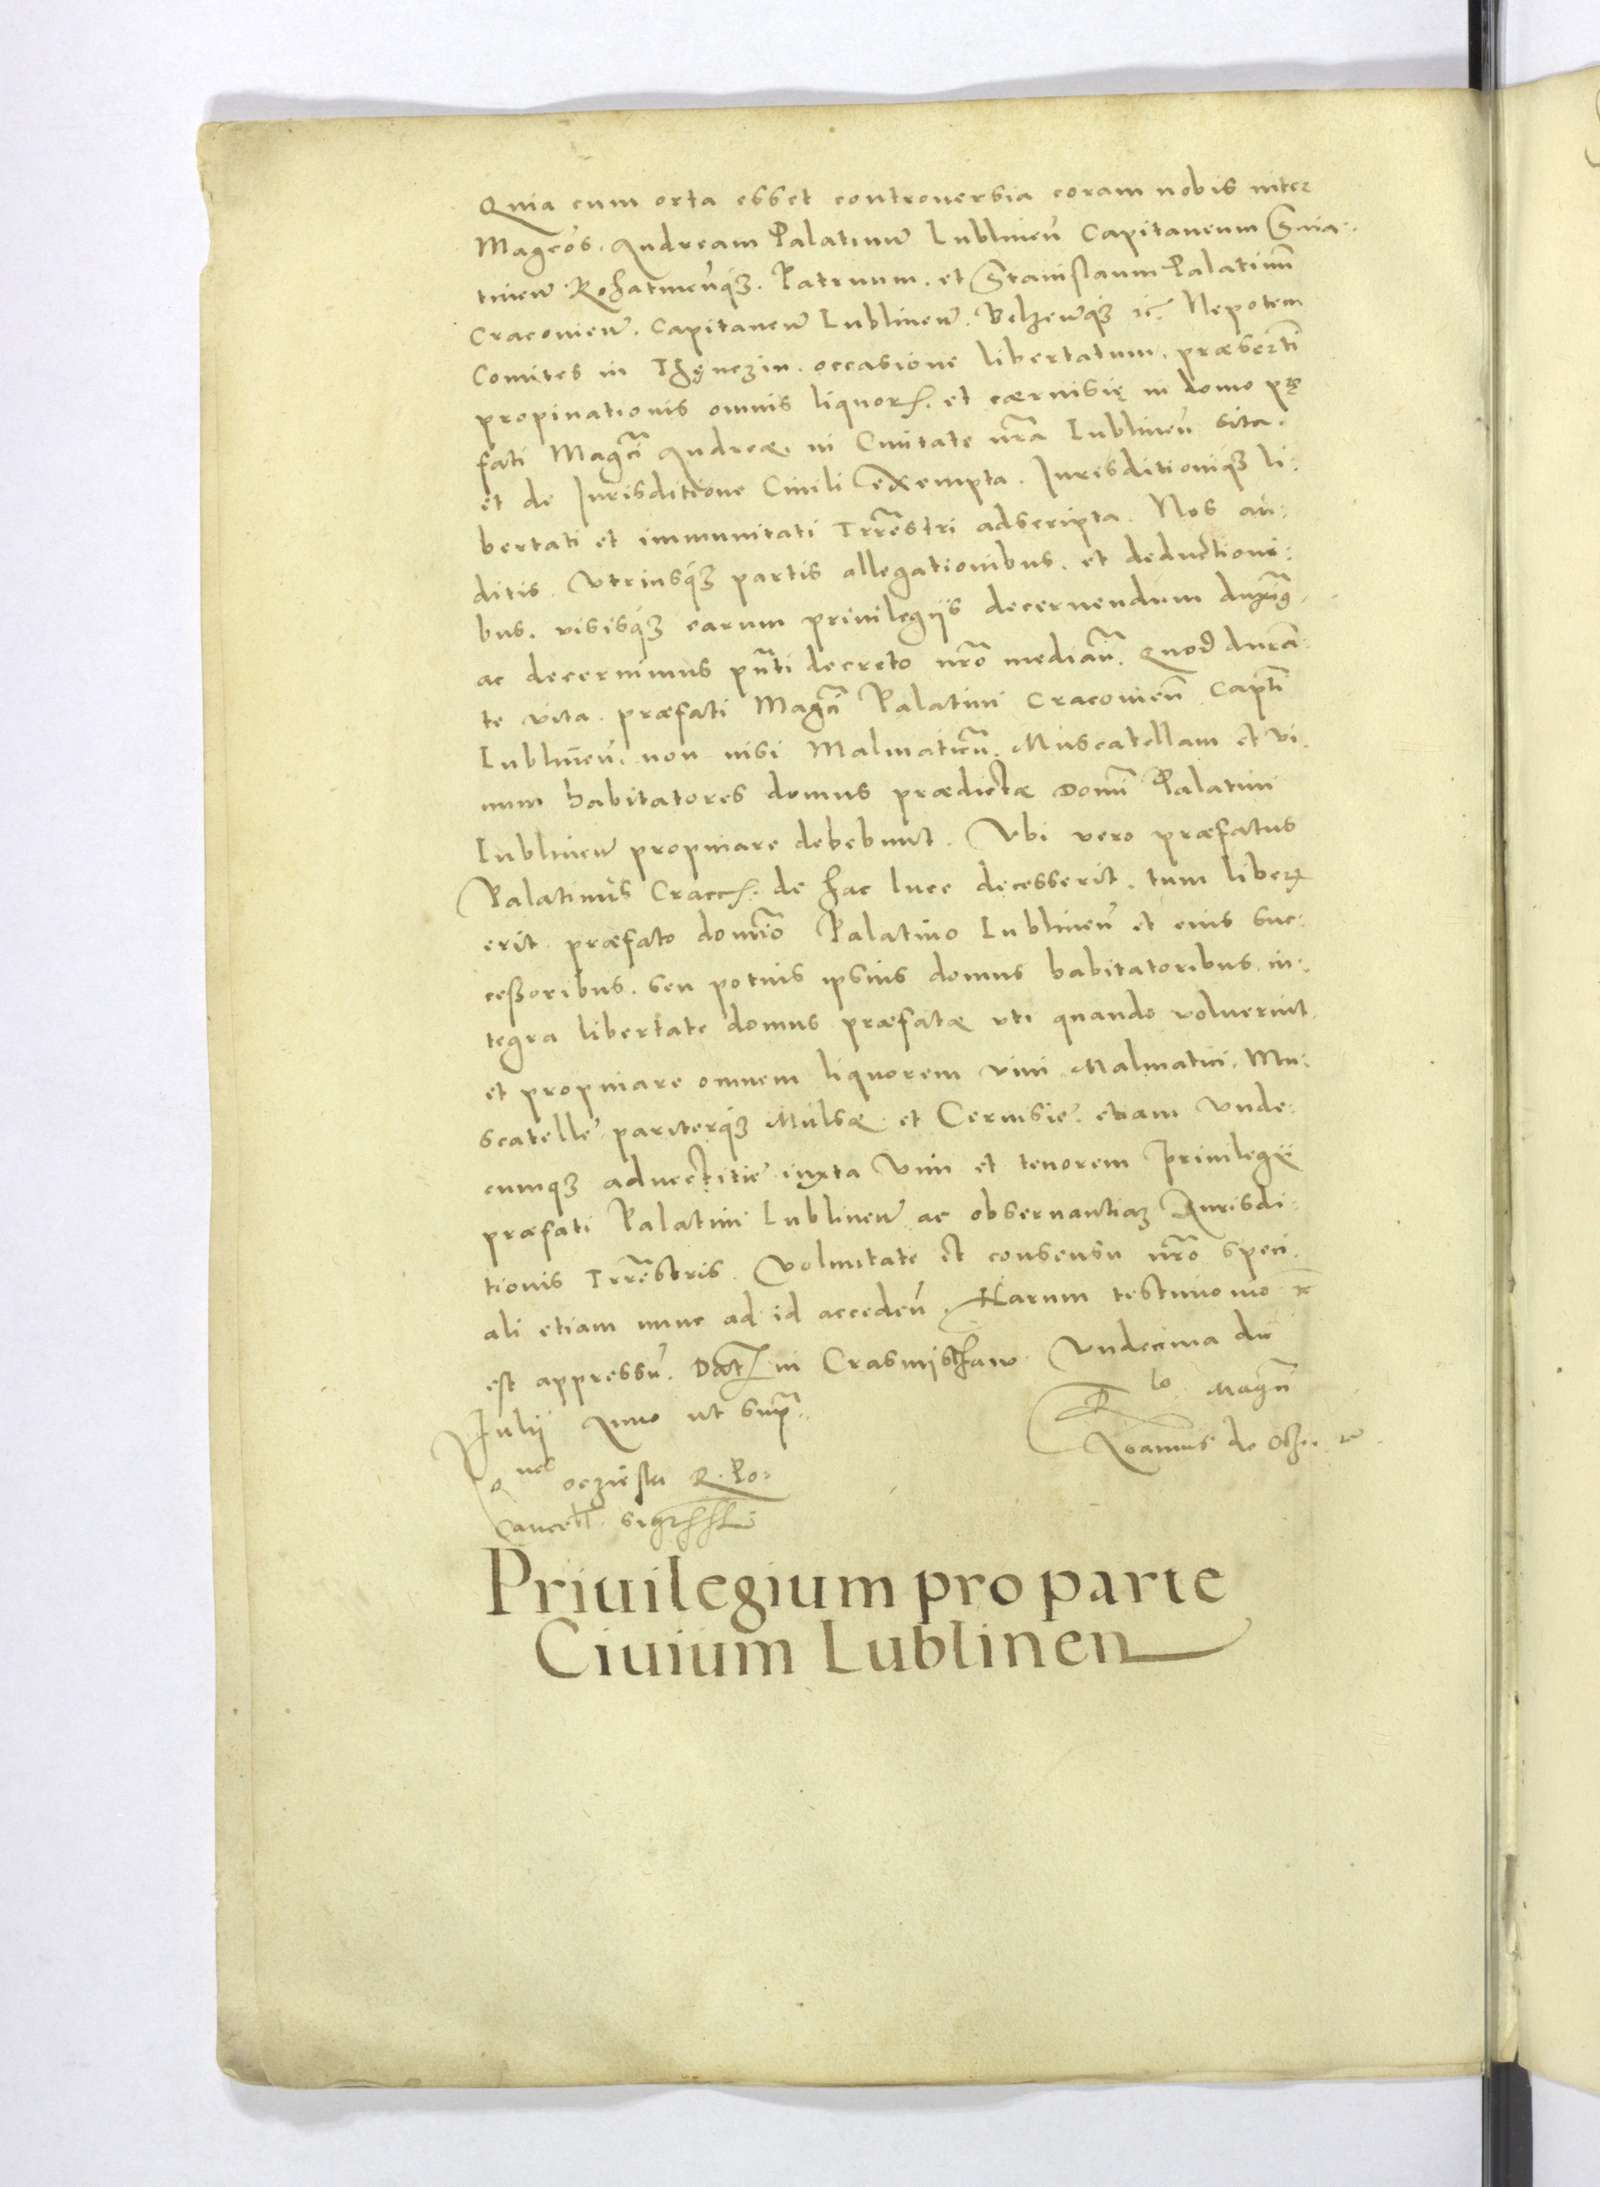 Quia cum orta esset controuersia coram nobis inter
Magcos. Andream Palatinum Lublineñ Capitaneum Snia:
tineñ Rohatineñqȝ. Patruum. et Stanislaum Palatinũ
Cracovieñ. Capitaneũ Lublineñ. Belzeñqȝ ꝛc̃. Nepotem
Comites in Thęnczin. occasione libertatum. præsertĩ
propinationis omnis liquoris. et cærvisię in domo prę
fati Magci Andreæ. in Ciuitate nr̃a Lublineñ sita.
et de Jurisditione Ciuili exempta. Jurisditioniqȝ li:
bertati et immunitati Trr̃estri adscripta. Nos au:
ditis. Vtriusqȝ partis allegationibus. et deductioni:
bus. visisqȝ earum priuilegijs decernendum duximꝰ
ac decernimus pñti decreto nr̃o mediañ. Quod durã:
te vita. præfati Magci Palatini Cracouieñ Captĩ
Lublineñ. non nisi Malmaticũ. Muscatellam et vi
num habitatores domus prædictæ Domĩ Palatini
Lublineñ propinare debebunt. Vbi vero præfatus
Palatinus Cracc. de hac luce decesserit. tum liberũ
erit præfato domino Palatino Lublineñ et eius suc:
cessoribus. seu potius ipsius domus habitatoribus in:
tegra libertate domus præfatæ vti quando voluerint
et propinare omnem liquorem vini Malmatici. Mu:
scatelle pariterqȝ Mulsæ et Ceruisie. etiam vnde:
cumqȝ aduectitie iuxta vim et tenorem Priuilegij
præfati Palatini Lublineñ ac obseruantiaȝ Jurisdi:
tionis Trr̃estris. Voluntate et consensu nr̃o speci.
ali etiam nunc ad id accedeñ. Harum testimonio ꝛc
est appressũ. Dat. in Crasnisthaw Vndecima die
Julij Anno ut supra.
Magñ
Joannis de Ocz
ocziesku R. Po.
Cancell.
Priuilegium pro parte
Ciuium Lublinen